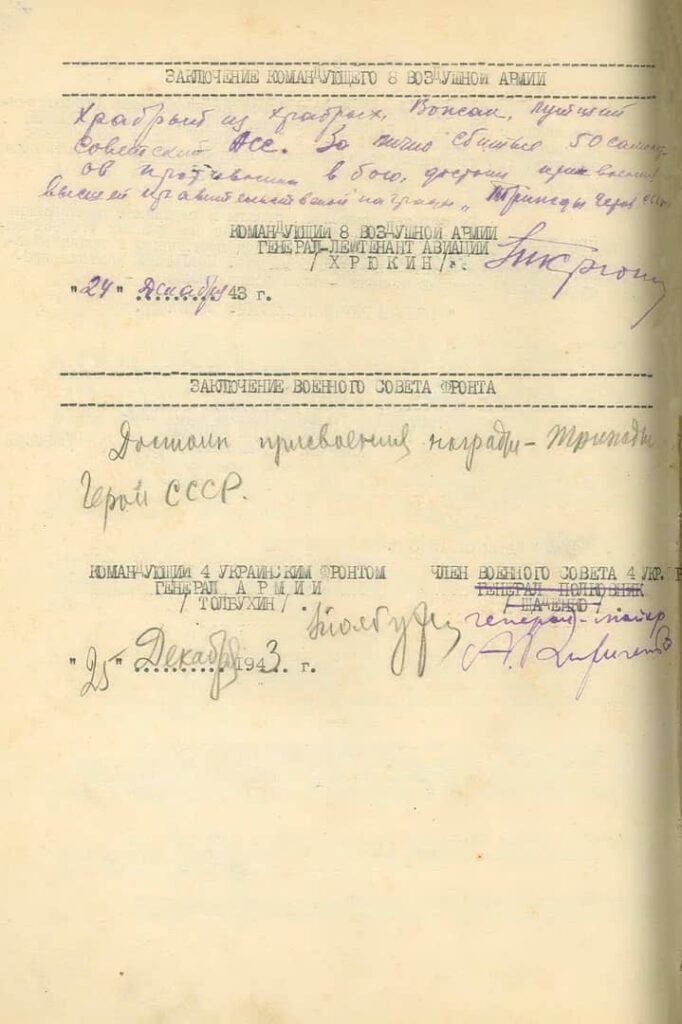 ЗАКЛЮЧЕНИЕ КОМАНДУЮЩЕГО 8 ВОЗДУШНОЙ АРМИИ
Храбрый из храбрых, Вожак, лучший
советский Асс. За лично сбитые 50 самолет
ов противника в бою, достоин присвоения
высшей правительственной награды „Трижды Герой СССР
КОМАНДУЮЩИЙ 8 ВОЗДУШНОЙ АРМИИ
ГЕНЕРАЛ-ЛЕЙТЕНАНТ АВИАЦИИ
/ХРЮКИН/ Хрюкин
"24" Декабря 43 г.
ЗАКЛЮЧЕНИЕ ВОЕННОГО СОВЕТА ФРОНТА
Достоин присвоения награды – Трижды
Герой СССР.
КОМАНДУЮЩИЙ 4 УКРАИНСКИМ ФРОНТОМ ЧЛЕН ВОЕННОГО СОВЕТА 4 УКР.
ГЕНЕРАЛ АРМИИ ГЕНЕРАЛ ПОЛКОВНИК
/ТОЛБУХИН/ /ЩАДЕНКО/
Толбухин генерал-майор
"25" Декабря 1943 г.